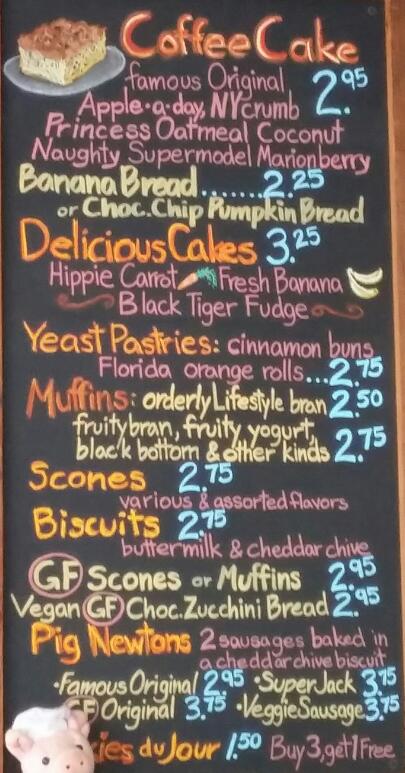 Coffee Cake
famous Original 2.95
Apple·a·day, NYcrumb
Princess Oatmeal Coconut
Naughty Supermodel Marionberry
Banana Bread.......2.25
or Choc.Chip Pumpkin Bread
Delicious Cakes 3.25
Hippie Carrot Fresh Banana
Black Tiger Fudge
Yeast Pastries: cinnamon buns
Florida orange rolls...2.75
Muffins: orderly Lifestyle bran 2.50
fruity bran, fruity yogurt,
black bottom & other kinds 2.75
Scones 2.75
various & assorted flavors
Biscuits 2.75
buttermilk & cheddar chive
GF Scones or Muffins 2.95
Vegan GF Choc.Zucchini Bread 2.95
Pig Newtons 2 sausages baked in
a cheddar chive biscuit
·Famous Original 2.95 ·Super Jack 3.75
GF Original 3.75 ·Veggie Sausage 3.75
du Jour 1.50 Buy 3, get 1 Free